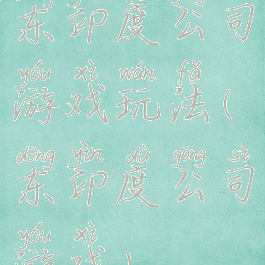 东印度公司
yóu xì wán fǎ
游戏玩法(
dōng yìn dù gōng sī
东印度公司
yóu xì
游戏)